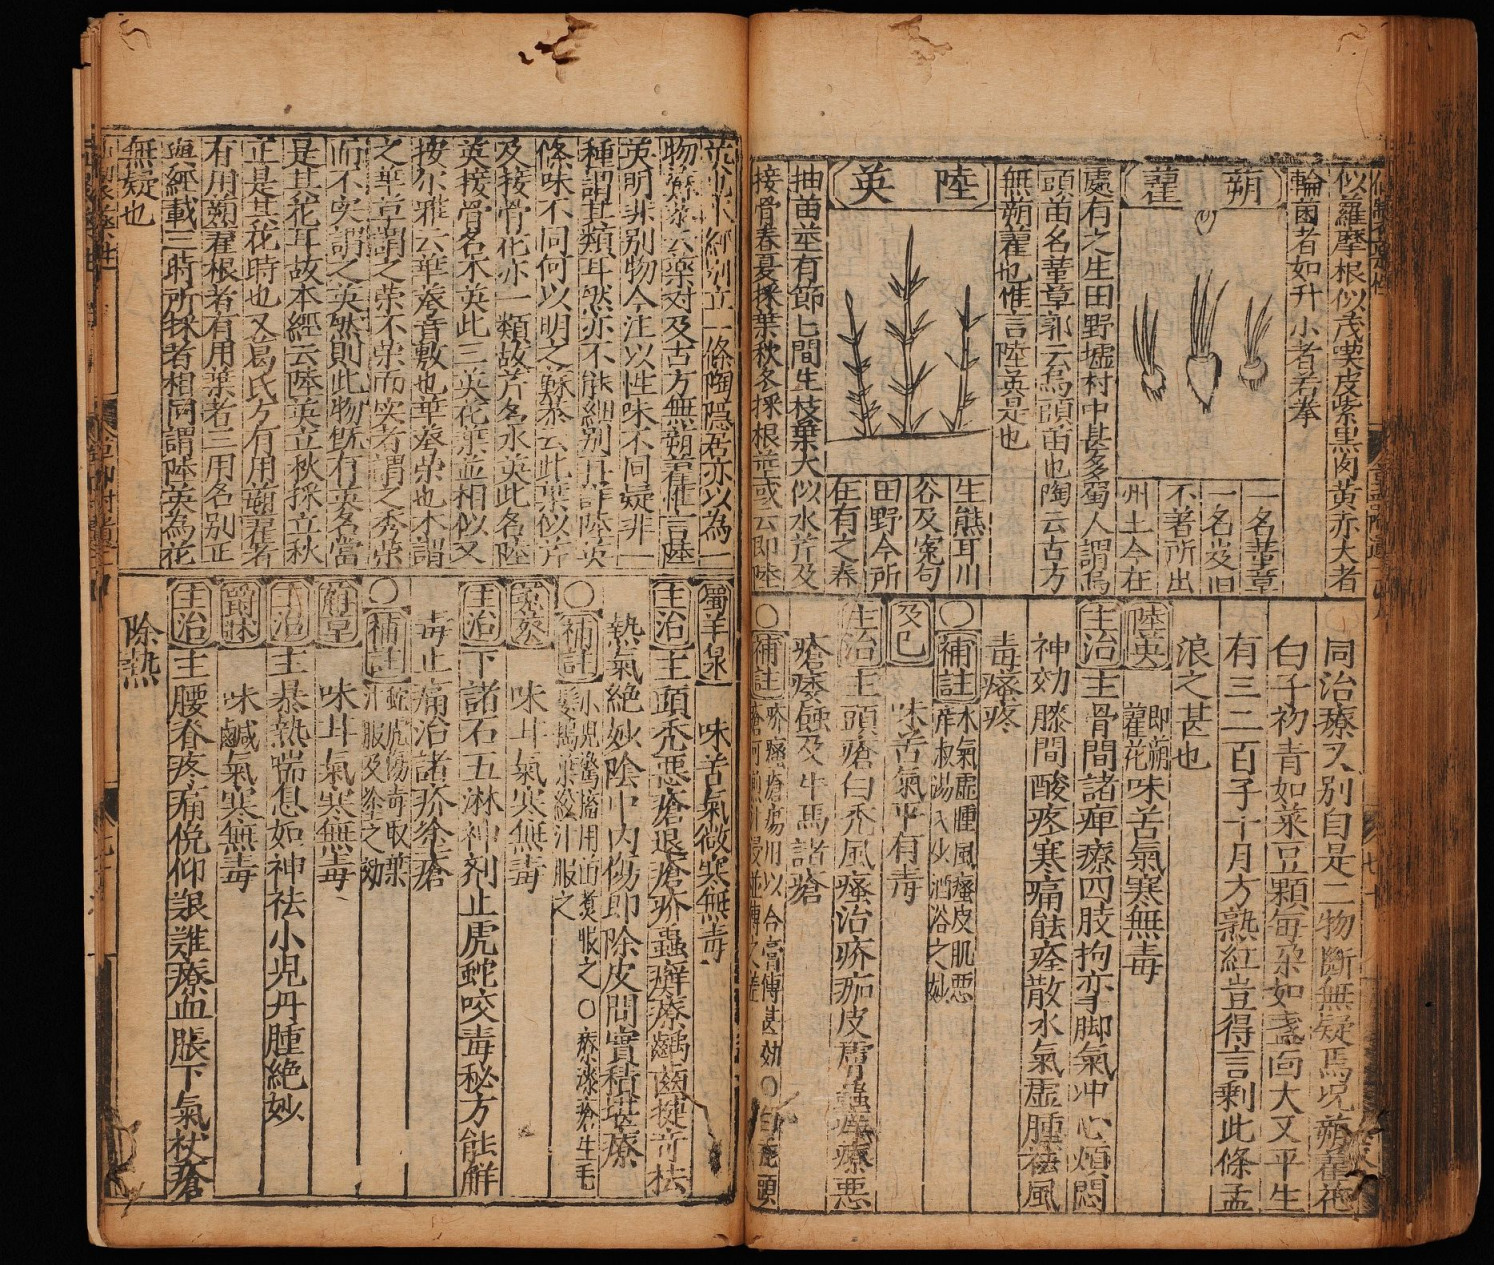 似羅摩根似茂漢皮紫黒肉黄亦大者
輪囷者如升小者若拳
蒴藋
一名菫章
一名芨旧
不著所出
州土今在
處有之生田野墟村中甚多蜀人謂烏
頭苗名菫章郭云烏頭苗也陶云古方
無蒴藋也惟言陸英是也
陸英
生熊耳川
谷及寃句
田野今所
在有之春
抽苗莖有節匕間生枝葉大似水芹及
接骨春夏採葉秋冬採根莖或云即陸
同治療又別自是二物斷無疑焉況蒴藋花
白子初青如菉豆顆每朶如盞面大又平生
有三二百子十月方熟紅豈得言剩此條孟
浪之甚也
陸英 即蒴藋花 味苦氣寒無毒
主治主骨間諸痺療四肢拘孿脚氣冲心煩悶
神効膝間酸疼寒痛能痊散水氣虛腫祛風
毒瘮疼
○補註 水氣虛腫風瘙皮肌惡
痒椒湯入少酒浴之妙
及已 味苦氣平有毒
主治主頭瘡白禿風瘙治疥痂皮膚蟲痒療惡
瘡痿蝕及牛馬諸瘡
○補註 疥瘙瘡瘍用以合膏傅甚効○白禿頭
瘡可煎汁浸並傅之差
英也本經別立一條陶隱君亦以為一
物蘇恭云藥对及古方無蒴藋惟言陸
英明非别物今注以性味不同疑非一
種謂其類耳然亦不能細別再詳陸英
條味不同何以明之蘇恭云此葉似芹
及接骨花亦一類故芹名水英此名陸
英接骨名木英此三英花葉並相似又
按尔雅云華荂音敷也華荂榮也木謂
之華草謂之榮不荣而实者謂之秀荣
而不实謂之英然則此物旣有英名當
是其花耳故本經云陸英立秋採立秋
正是其花時也又葛氏方有用蒴藋者
有用蒴藋根者有用葉者三用各別正
與經載三時所採者相同謂陸英為花
無疑也
蜀羊泉 味苦氣微寒無毒
主治主頭禿惡瘡退瘡疥蟲癬療齲齒揵竒祛
熱氣絕妙陰中内傷即除皮間實積堪療
○補註 小児驚搐用苗煑服之○療漆瘡生毛
髮搗葉絞汁服之
菟葵 味甘氣寒無毒
主治下諸石五淋神剂止虎蛇咬毒秘方能解
毒止痛治諸疥柒瘡
○補註 蛇虎傷毒取葉
汁服及塗之効
葥草 味甘氣寒無毒
主治主暴熱喘息如神祛小児丹腫絕妙
爵牀 味鹹氣寒無毒
主治主腰脊疼痛俛仰艱難療血脹下氣杖瘡
除熱